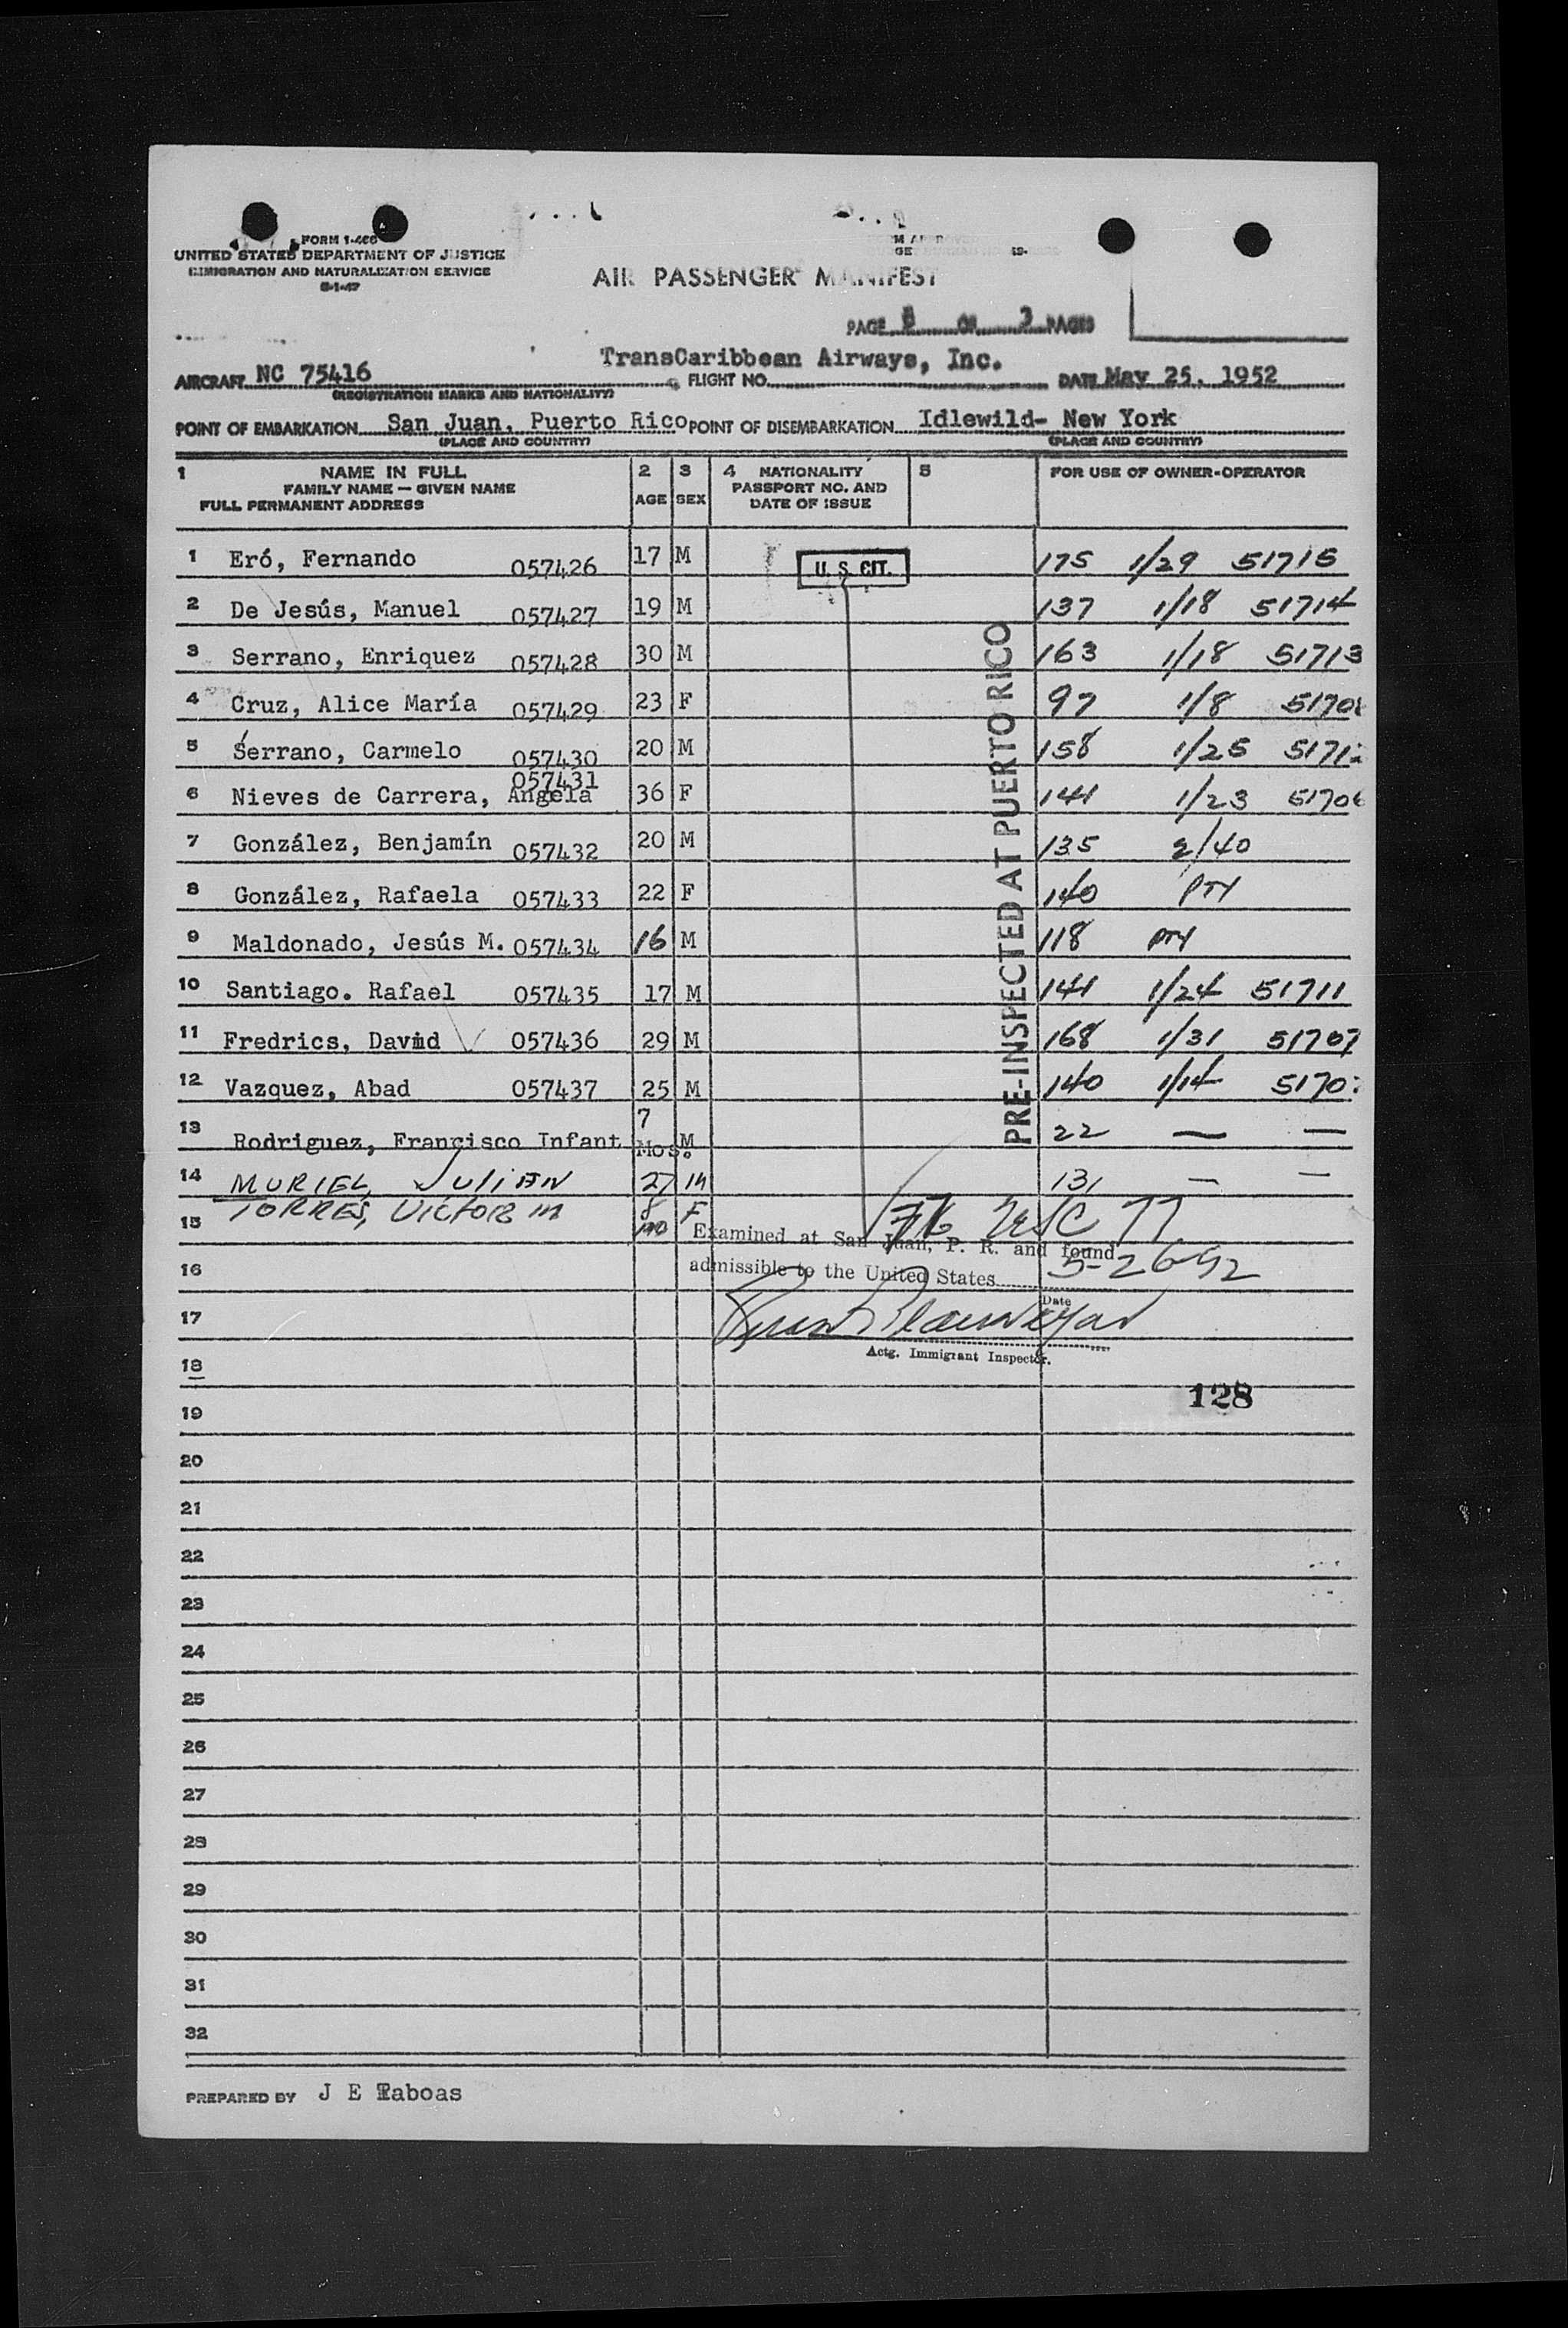 FORM I-466
UNITED STATES DEPARTMENT OF JUSTICE
IMMIGRATION AND NATURALIZATION SERVICE
5-1-47
AIR PASSENGER MANIFEST
PAGE 3 OF 3 PAGES
TransCaribbean Airways, Inc.
AIRCRAFT NC 75416 FLIGHT NO. DATE May 25, 1952
(REGISTRATION MARKS AND NATIONALITY)
POINT OF EMBARKATION San Juan, Puerto Rico POINT OF DISEMBARKATION Idlewild- New York
(PLACE AND COUNTRY) (PLACE AND COUNTRY)
1 NAME IN FULL 2 3 4 NATIONALITY 5 FOR USE OF OWNER-OPERATOR
FAMILY NAME — GIVEN NAME AGE SEX PASSPORT NO. AND
FULL PERMANENT ADDRESS DATE OF ISSUE
1 Eró, Fernando 057426 17 M U. S. CIT. 175 1/29 51715
2 De Jesús, Manuel 057427 19 M 137 1/18 51714
3 Serrano, Enriquez 057428 30 M 163 1/18 51713
4 Cruz, Alice María 057429 23 F 97 1/8 5170
5 Serrano, Carmelo 057430 20 M 158 1/25 5171
6 Nieves de Carrera, Angela 057431 36 F 141 1/23 51706
7 González, Benjamín 057432 20 M 135 2/40
8 González, Rafaela 057433 22 F 140 PTY
9 Maldonado, Jesús M. 057434 16 M 118 PTY
10 Santiago. Rafael 057435 17 M 141 1/24 51711
11 Fredrics, David 057436 29 M 168 1/31 51707
12 Vazquez, Abad 057437 25 M 140 1/14 5170
13 Rodriguez, Francisco Infant 7 Mos. M 22 — —
14 MURIEL, JULIAN 27 M 131 — —
15 TORRES, VICTOR M 8 mo F
PRE-INSPECTED AT PUERTO RICO
76 USC 77
Examined at San Juan, P. R. and found
16 admissible to the United States 5-26-52
Date
17
Actg. Immigrant Inspector.
18
128
19
20
21
22
23
24
25
26
27
28
29
30
31
32
PREPARED BY J E Taboas